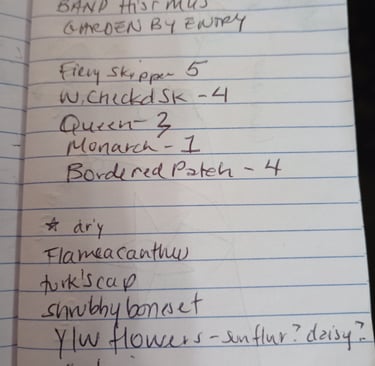 BAND HIST MUS
GARDEN BY ENTRY
Fiery Skipper 5
W. Checkd Sk - 4
Queen - 3
Monarch - 1
Bordered Patch - 4
* dry
Flameacanthus
turk's cap
shrubby boneset
Ylw flowers - sunflwr? daisy?